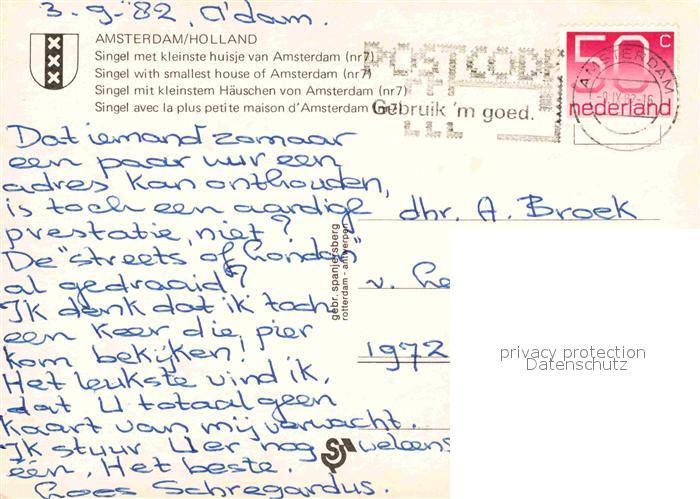 3-9-'82, A'dam.
AMSTERDAM/HOLLAND
Singel met kleinste huisje van Amsterdam (nr7)
Singel with smallest house of Amsterdam (nr7)
Singel mit kleinstem Häuschen von Amsterdam (nr7)
Singel avec la plus petite maison d'Amsterdam (nr7)
POSTCODE
Gebruik 'm goed.
50 c
nederland
AMSTERDAM
Dat iemand zomaar
een paar uur een
adres kan onthouden,
is toch een aardige
prestatie, niet?
De "streets of London"
al gedraaid?
Ik denk dat ik toch
een keer die pier
kom bekijken!
Het leukste vind ik,
dat U totaal geen
kaart van mij verwacht.
Ik stuur U er nog weleens
één. Het beste.
Loes Schregardus.
gebr. spanjersberg
rotterdam - antwerpen
dhr. A. Broek
v. Le
1972
privacy protection
Datenschutz